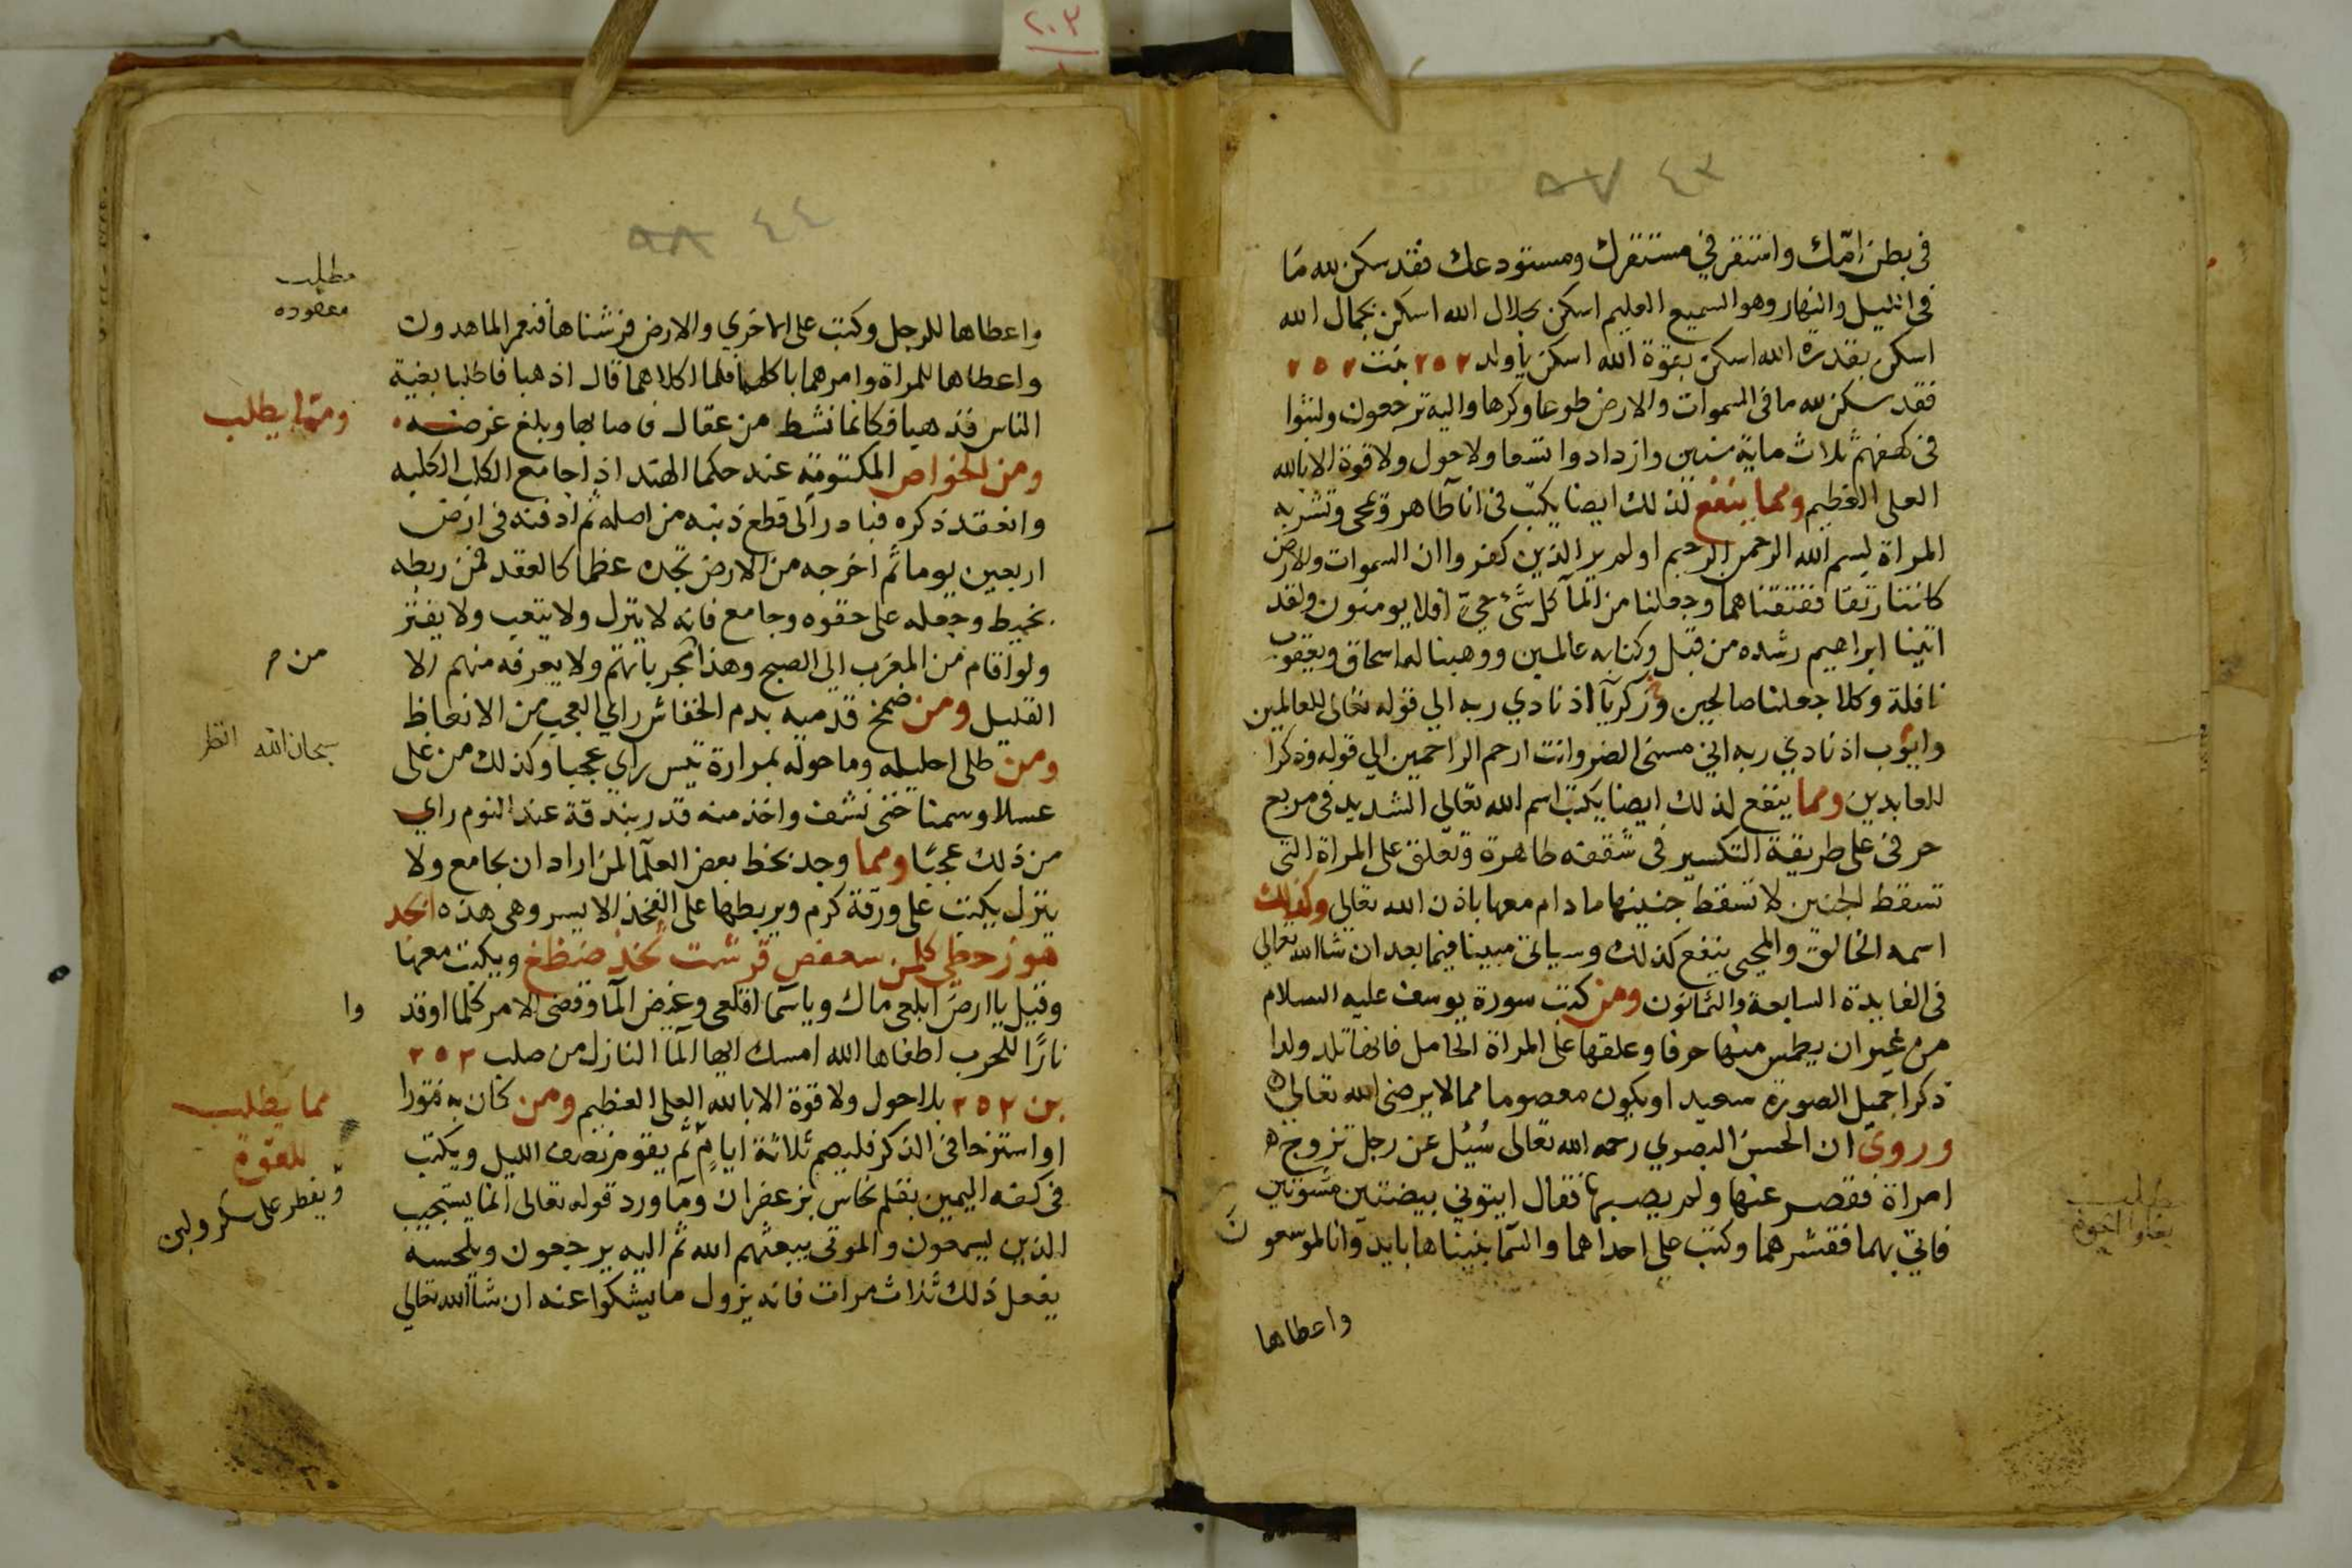 ٢٠٣
٨٧ ٤٣
في بطن امّك واستقر في مستقرك ومستودعك فقد سكن لله ما
في الليل والنهار وهو السميع العليم اسكن بجلال الله اسكن بجمال الله
اسكن بقدرة الله اسكن بقوة الله اسكن ياولد ٢٥٢ بنت ٢٥٢
فقد سكن لله ما في السموات والارض طوعا وكرها واليه ترجعون ولبثوا
في كهفهم ثلاث ماية سنين وازدادوا تسعا ولا حول ولا قوة الا بالله
العلى العظيم ومما ينفع لذلك ايضا يكتب في انآ طاهر ويمحى وتشربه
المراة بسم الله الرحمن الرحيم اولم ير الذين كفروا ان السموات والارض
كانتا رتقا ففتقناهما وجعلنا من المآ كل شئ حيّ افلا يومنون ولقد
اتينا ابراهيم رشده من قبل وكنا به عالمين ووهبنا له اسحاق ويعقوب
نافلة وكلا جعلنا صالحين وزكريآ اذ نادي ربه الي قوله تعالى للعالمين
وايّوب اذ نادي ربه اني مسني الضر وانت ارحم الراحمين الي قوله وذكرا
للعابدين ومما ينفع لذلك ايضا يكتب اسم الله تعالي الشديد في مربع
حرفي على طريقة التكسير في شقفه طاهرة وتعلق على المراة التي
تسقط الجنين لا تسقط جنينها ما دام معها باذن الله تعالي وكذلك
اسمه الخالق والمحيى ينفع كذلك وسياتي مبينا فيما بعد ان شا الله تعالي
في الفايدة السابعة والثمانون ومن كتب سورة يوسف عليه السلام
من غير ان يطمس منها حرفا وعلقها على المراة الحامل فانها تلد ولدا
ذكرا جميل الصورة سعيد او يكون معصوما مما لا يرضى الله تعالى
وروي ان الحسن البصري رحمه الله تعالى سُئل عن رجل تزوج
امراة فقصر عنها ولم يصبها فقال ايتوني ببيضتين مشويتين
فاتي بهما فقشرهما وكتب على احداهما والسمآ بنيناها بايد وانا لموسعون
واعطاها
٨٨ ٤٤
مطلب
معقوده
واعطاها للرجل وكتب على الاخري والارض فرشناها فنعم الماهدون
واعطاها للمراة وامرهما باكلهما فلما اكلاهما قال اذهبا فاطلبا بغية
الناس فذهبا فكانما نشط من عقال فاصابها وبلغ غرضه
ومما يطلب
ومن الخواص المكتومة عند حكما الهند اذا جامع الكلب الكلبه
وانعقد ذكره فبادر الى قطع ذنبه من اصله ثم ادفنه في ارض
اربعين يوما ثم اخرجه من الارض تجده عظما كالعقد فمن ربطه
بخيط وجعله على حقوه وجامع فانه لا ينزل ولا يتعب ولا يفتر
ولو اقام من المغرب الى الصبح وهذا مجرباتهم ولا يعرفه منهم الا
من م
القليل ومن ضمخ قدميه بدم الخفاش راي العجب من الانعاظ
سبحان الله انظر
ومن طلى احليله وما حوله بمرارة تيس راي عجبا وكذلك من غلى
عسلا وسمنا حتى نشف واخذ منه قدر بندقة عند النوم راي
من ذلك عجبًا ومما وجد بخط بعض العلما لمن اراد ان يجامع ولا
ينزل يكتب على ورقة كرم ويربطها على الفخذ الايسر وهى هذه ابجد
هوز حطي كلمن سعفص قرشت ثخذ ضظغ ويكتب معها
وقيل يا ارض ابلعى ماك ويا سما اقلعى وغيض المآ وقضى الامر كلما اوقد
وا
نارًا للحرب اطفاها الله امسك ايها المآ النازل من صلب ٢٥٢
بن ٢٥٢ بلا حول ولا قوة الا بالله العلى العظيم ومن كان به فتورا
مما يطلب
للقوة
او استرخا في الذكر فليصم ثلاثة ايام ثم يقوم نصف الليل ويكتب
ويفطر على سكر ولبن
في كفه اليمين بقلم نحاس بزعفران ومآ ورد قوله تعالى انما يستجيب
الذين يسمعون والموتى يبعثهم الله ثم اليه يرجعون ويلحسه
يفعل ذلك ثلاث مرات فانه يزول ما يشكوا عنه ان شا الله تعالي